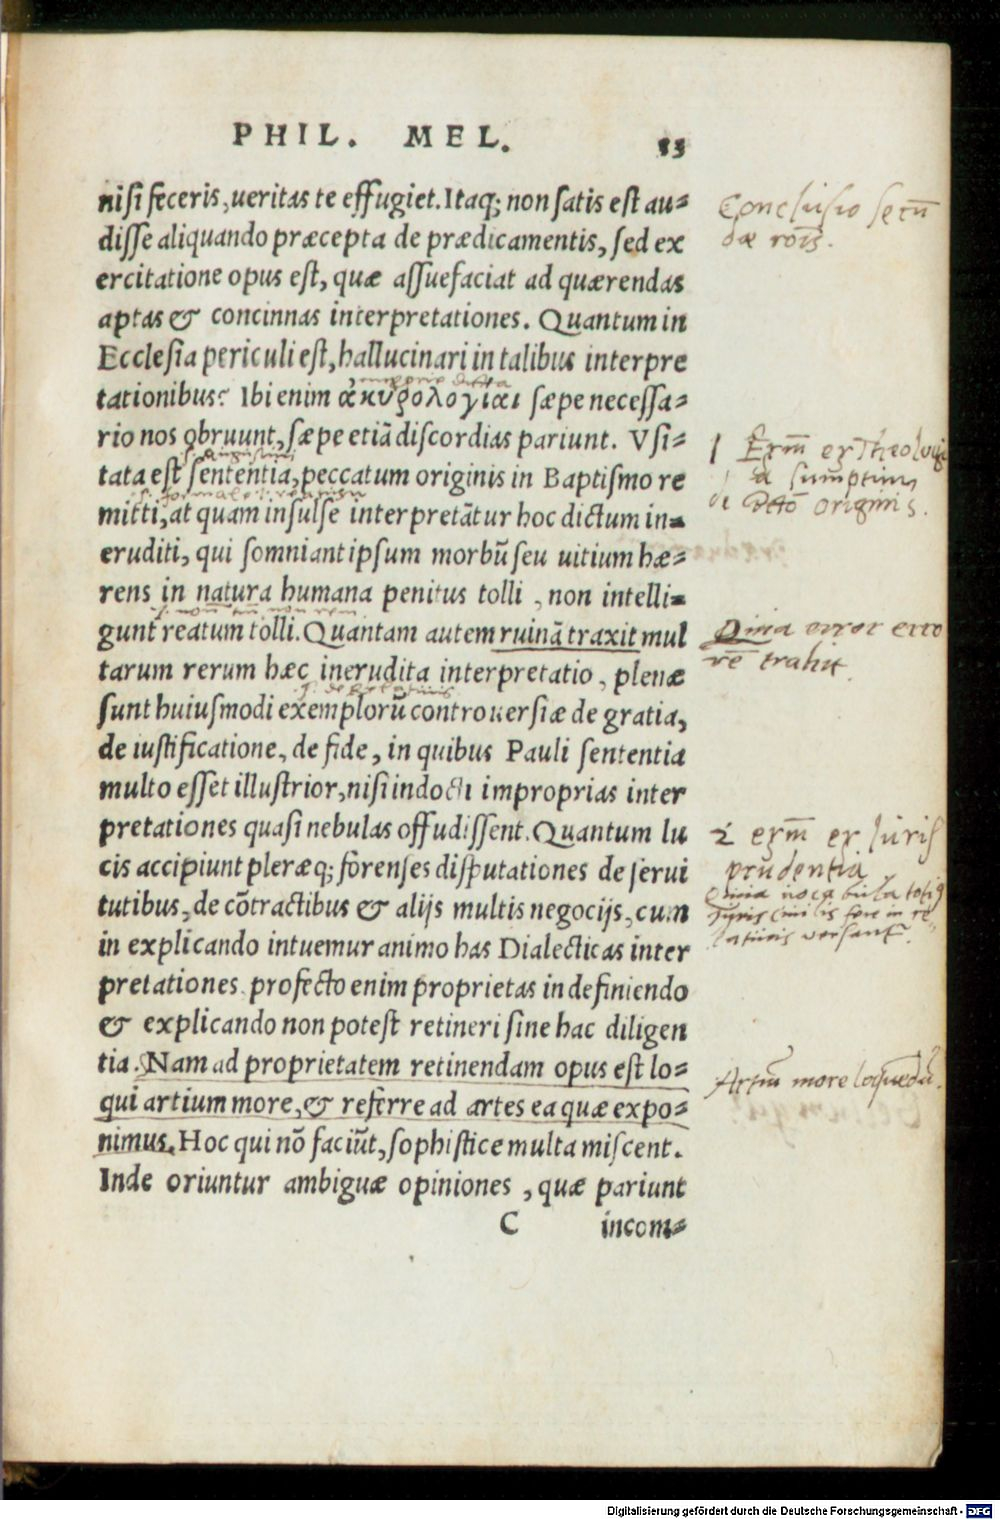 PHIL. MEL. 33
nisi feceris, ueritas te effugiet. Itaq; non satis est au-
disse aliquando præcepta de prædicamentis, sed ex
ercitatione opus est, quæ assuefaciat ad quærendas
aptas & concinnas interpretationes. Quantum in
Ecclesia periculi est, hallucinari in talibus interpre
tationibus? Ibi enim ἀκυρολογίαι sæpe necessa-
rio nos obruunt, sæpe etiã discordias pariunt. Vsi-
tata est sententia, peccatum originis in Baptismo re
mitti, at quam insulse interpretãtur hoc dictum in-
eruditi, qui somniant ipsum morbũ seu uitium hæ-
rens in natura humana penitus tolli, non intelli-
gunt reatum tolli. Quantam autem ruinã traxit mul
tarum rerum hæc inerudita interpretatio, plenæ
sunt huiusmodi exemplorũ controuersiæ de gratia,
de iustificatione, de fide, in quibus Pauli sententia
multo esset illustrior, nisi indocti improprias inter
pretationes quasi nebulas offudissent. Quantum lu
cis accipiunt pleræq; forenses disputationes de serui
tutibus, de cõtractibus & alijs multis negocijs, cum
in explicando intuemur animo has Dialecticas inter
pretationes. profecto enim proprietas in definiendo
& explicando non potest retineri sine hac diligen
tia. Nam ad proprietatem retinendam opus est lo-
qui artium more, & referre ad artes ea quæ expo-
nimus. Hoc qui nõ faciũt, sophistice multa miscent.
Inde oriuntur ambiguæ opiniones, quæ pariunt
C incom-
Conclusio secũ
dæ
1
sumptum
originis.
error erro
rẽ trahit.
2
Iuris
prudentia
more
Digitalisierung gefördert durch die Deutsche Forschungsgemeinschaft - DFG